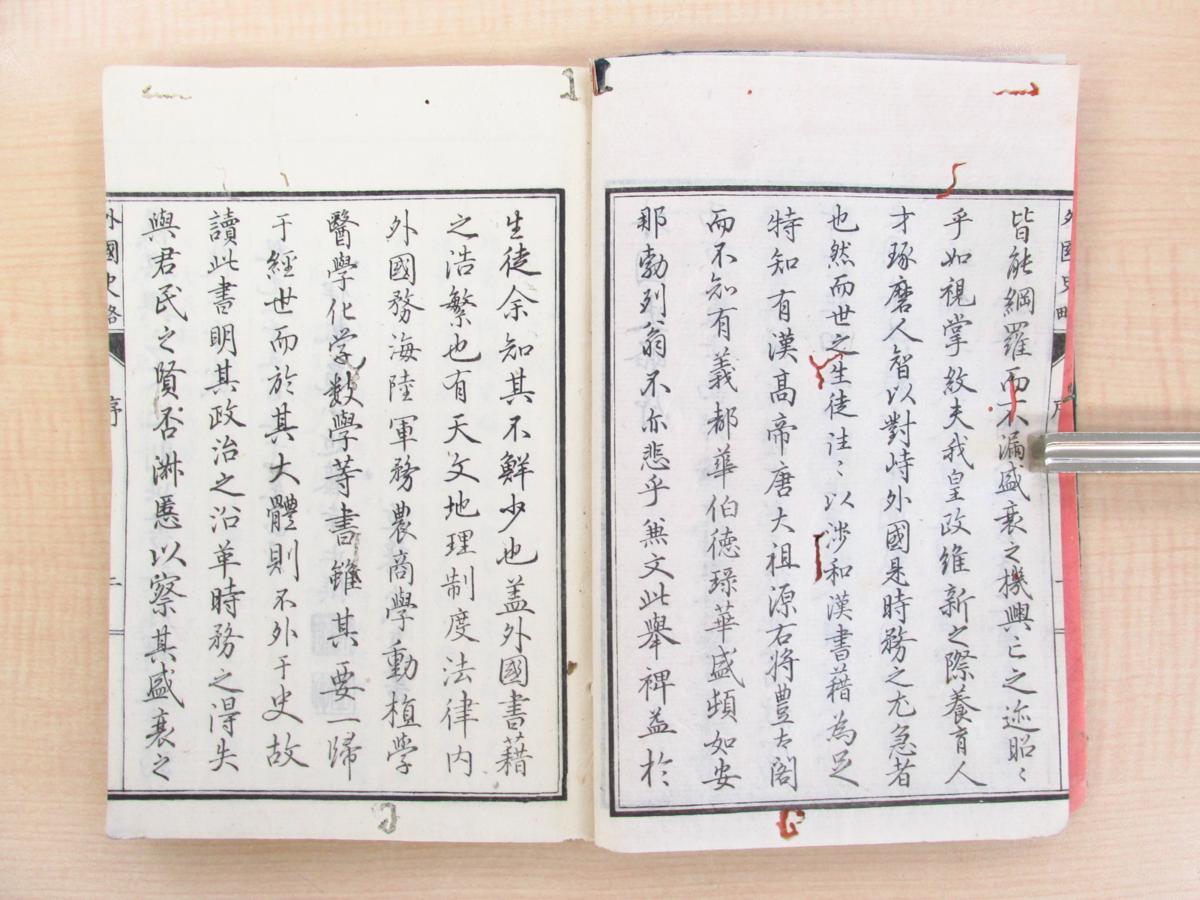 外國史畧
序
一
皆能綱羅而不漏盛衰之機興亡之迹昭〻
乎如視掌紋夫我皇政維新之際養育人
才琢磨人智以對峙外國是時務之尤急者
也然而世之生徒注〻以渉和漢書藉為足
特知有漢髙帝唐大祖源右将豊太閤
而不知有義都華伯徳琭華盛頓如安
那勃列翁不亦悲乎無文此舉裨益於
生徒余知其不鮮少也盖外國書藉
之浩繁也有天文地理制度法律内
外國務海陸軍務農商學動植学
醫學化学数學等書雖其要一歸
于經世而於其大體則不外于史故
讀此書明其政治之沿革時務之得失
與君民之賢否淋慝以察其盛衰之
外國史略
序
二